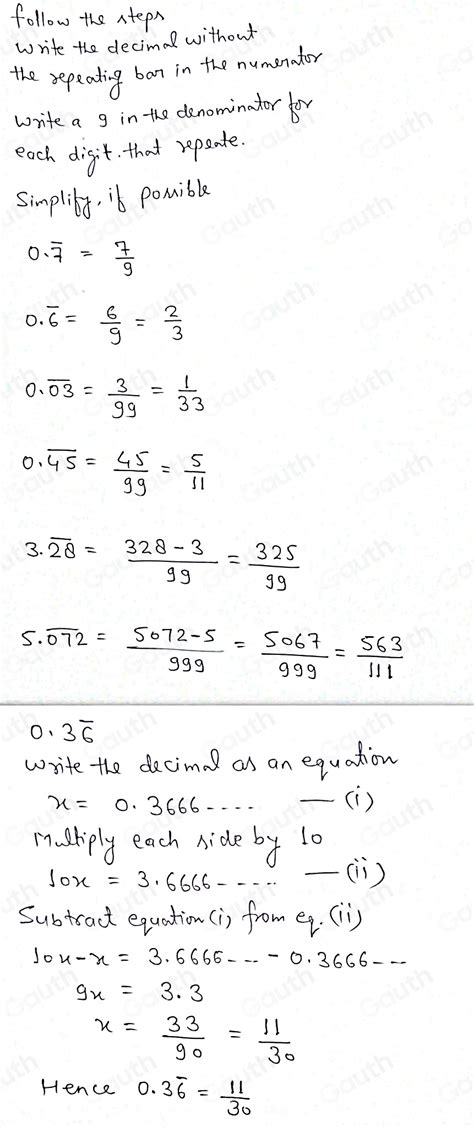 follow the steps
write the decimal without
the repeating bar in the numerator
write a 9 in the denominator for
each digit. that repeate.
Simplify, if possible
0.7̅ = 7/9
0.6̅ = 6/9 = 2/3
0.0̅3̅ = 3/99 = 1/33
0.4̅5̅ = 45/99 = 5/11
3.2̅8̅ = 328-3/99 = 325/99
5.0̅7̅2̅ = 5072-5/999 = 5067/999 = 563/111
0.36̅
write the decimal as an equation
x = 0.3666---- — (i)
Multiply each side by 10
10x = 3.6666----- — (ii)
Subtract equation (i) from eq. (ii)
10x-x = 3.6666--- - 0.3666---
9x = 3.3
x = 33/90 = 11/30
Hence 0.36̅ = 11/30